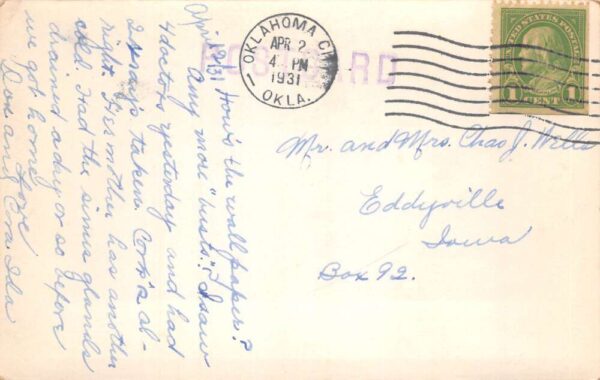 POST CARD
OKLAHOMA CITY
APR 2
4 PM
1931
OKLA.
UNITED STATES POSTAGE
1 CENT 1
Mr. and Mrs. Chas J. Wells
Eddyville
Iowa
Box 92.
April 2/31
How's the wallpaper?
Any more "hints"? I saw
4 doctors yesterday and had
2 x-rays taken. al-
right. His mother has another
cold. Had the sinus glands
drained a day or so before
we got home.
Love
and Ida